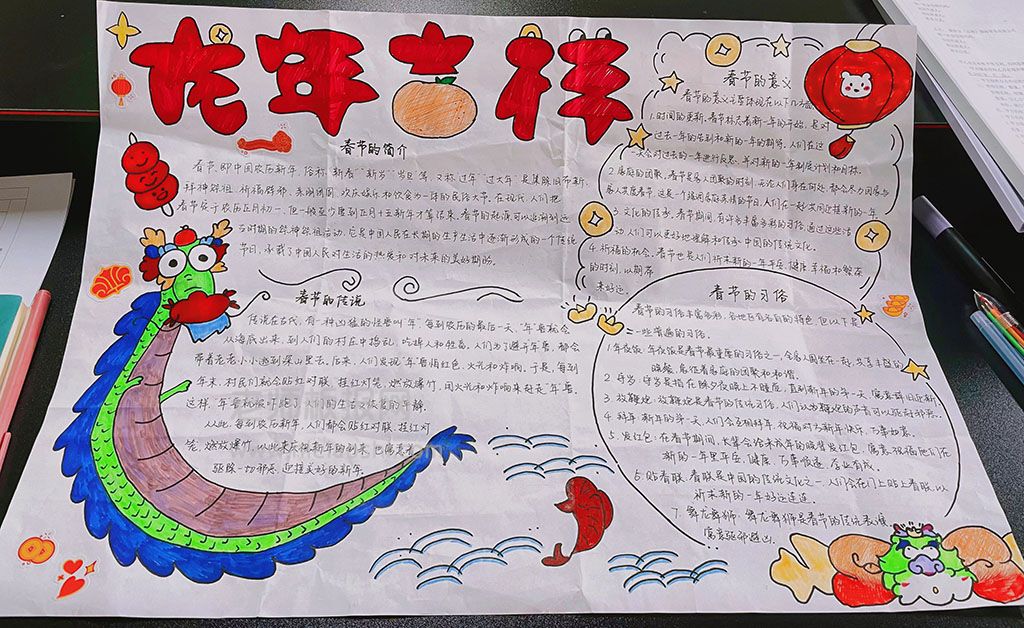 龙年吉祥
春节的简介
春节,即中国农历新年,俗称"新春""新岁""岁旦"等,又称"过年""过大年"是集除旧布新、
拜神祭祖、祈福辟邪、亲朋团圆、欢庆娱乐和饮食为一体的民俗大节。在现代,人们把
春节定于农历正月初一,但一般至少要到正月十五新年才算结束。春节的起源可以追溯到远
古时期的祭神祭祖活动,它是中国人民在长期的生产生活中逐渐形成的一个传统
节日,承载了中国人民对生活的热爱和对未来的美好期盼。
春节的传说
传说在古代,有一种凶猛的怪兽叫"年"每到农历的最后一天,"年"兽就会
从海底出来,到人们的村庄中捣乱,吃掉人和牲畜,人们为了避开年兽,都会
带着老老小小逃到深山里去。后来,人们发现"年"兽怕红色、火光和炸响。于是,每到
年末,村民们就会贴红对联、挂红灯笼、燃放爆竹,用火光和炸响来赶走"年"兽
这样,"年"兽就被吓跑了,人们的生活又恢复的平静。
从此,每到农历新年,人们都会贴红对联、挂红灯
笼,燃放爆竹,以此来庆祝新年的到来,也寓意着
驱除一切邪恶,迎接美好的新年
春节的意义
春节的意义主要体现在以下几方面
1.时间的更新,春节标志着新一年的开始,是对
过去一年的告别和新的一年的期盼。人们在这
一天会对过去的一年进行反思,并对新的一年制定计划和目标。
2.家庭的团聚,春节是家人团聚的时刻,无论人们身在何处,都会尽力回家与
家人共度春节,这是一个强调家庭亲情的节日,人们在一起,共同迎接新的一年
3.文化的传承,春节期间,有许多丰富多彩的习俗,通过这些活
动,人们可以更好地理解和传承中国的传统文化。
4.祈福的机会,春节也是人们祈求新的一年平安、健康、幸福和繁荣
的时刻,以期存
来好运。
春节的习俗
春节的习俗丰富多彩,各地区有各自的特色,但以下是
一些普遍的习俗。
1.年夜饭:年夜饭是春节最重要的习俗之一,全家人围坐在一起,共享丰盛的
晚餐,象征着家庭的团聚和和谐。
2.守岁:守岁是指在除夕夜晚上不睡觉,直到新年的第一天,寓意辞旧迎新
3.放鞭炮:放鞭炮是春节的传统习俗,人们认为鞭炮的声音可以驱赶邪恶。
4.拜年:新年的第一天,人们会互相拜年,祝福对方新年快乐、万事如意。
5.发红包:在春节期间,长辈会给未成年的晚辈发红包,寓意祝福他们在
新的一年里平安、健康、万事顺遂、学业有成。
6.贴春联:春联是中国的传统文化之一,人们会在门上贴上春联,以
祈求新的一年好运连连。
7.舞龙舞狮:舞龙舞狮是春节的传统表演,
寓意驱邪避凶。